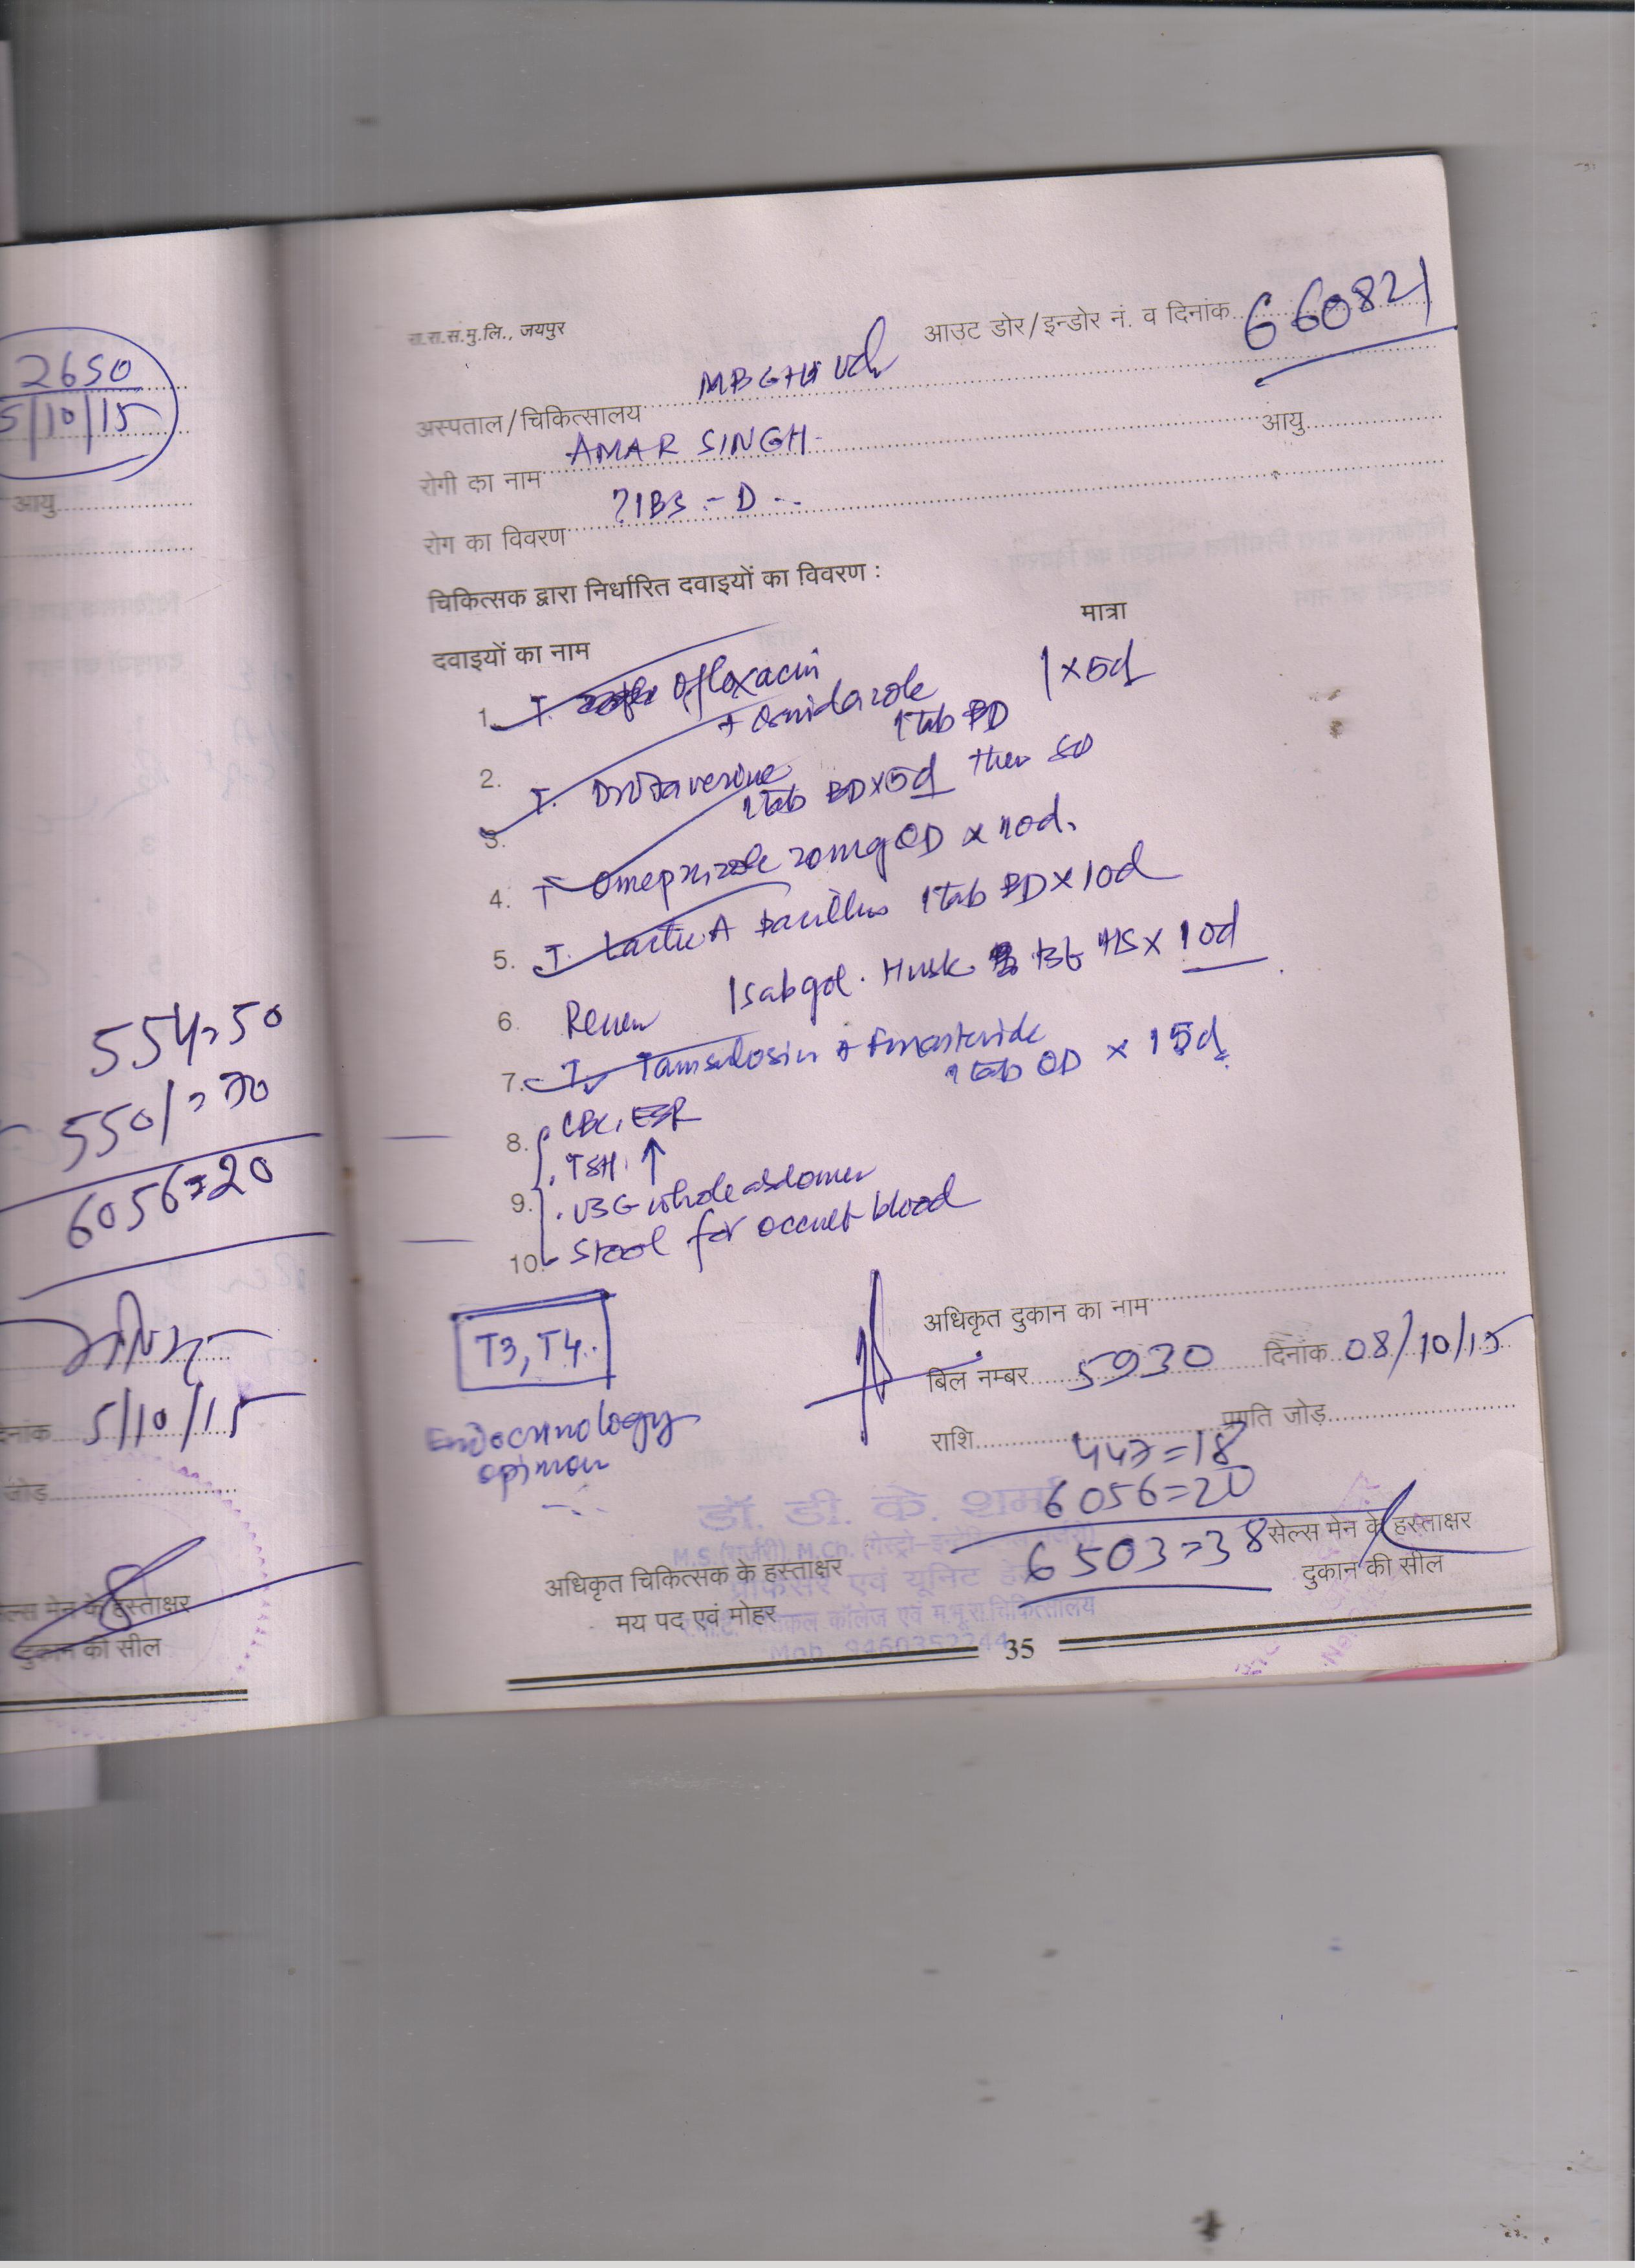 2650
5/10/15
आयु
554=50
5501=70
6056=20
5/10/15
दिनांक
जोड़
सेल्स मेन के हस्ताक्षर
दुकान की सील
रा.रा.स.मु.लि., जयपुर
आउट डोर/इन्डोर नं. व दिनांक 660821
अस्पताल/चिकित्सालय MBGH Udr
रोगी का नाम AMAR SINGH आयु
रोग का विवरण ?IBS - D
चिकित्सक द्वारा निर्धारित दवाइयों का विवरण :
दवाइयों का नाम मात्रा
1. T. Ofloxacin 1x5d
+ Ornidazole
1 tab BD
2. T. Drotaverine
3. 1 tab BD x 5d then SD
4. T. Omeprazole 20mg OD x 10d.
5. T. Lactic A Bacillus 1 tab BD x 10d
6. Isabgol. Husk HS x 10d
7. T. Tamsulosin + Finasteride
1 tab OD x 15d.
8. CBC, ESR
. TSH. ↑
9. . USG whole abdomen
10. Stool for occult blood
T3, T4.
Endocrinology
opinion
अधिकृत दुकान का नाम
बिल नम्बर 5930 दिनांक 08/10/15
राशि प्रगति जोड़
447=18
6056=20
6503=38
सेल्स मेन के हस्ताक्षर
दुकान की सील
डॉ. डी. के. शर्मा
अधिकृत चिकित्सक के हस्ताक्षर
मय पद एवं मोहर
35